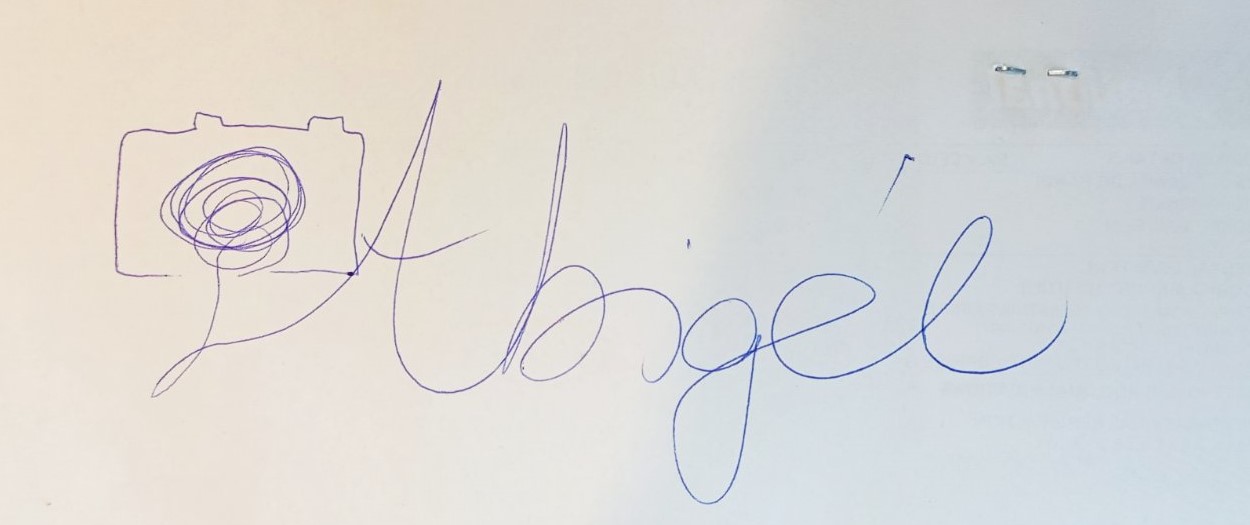 Abigél